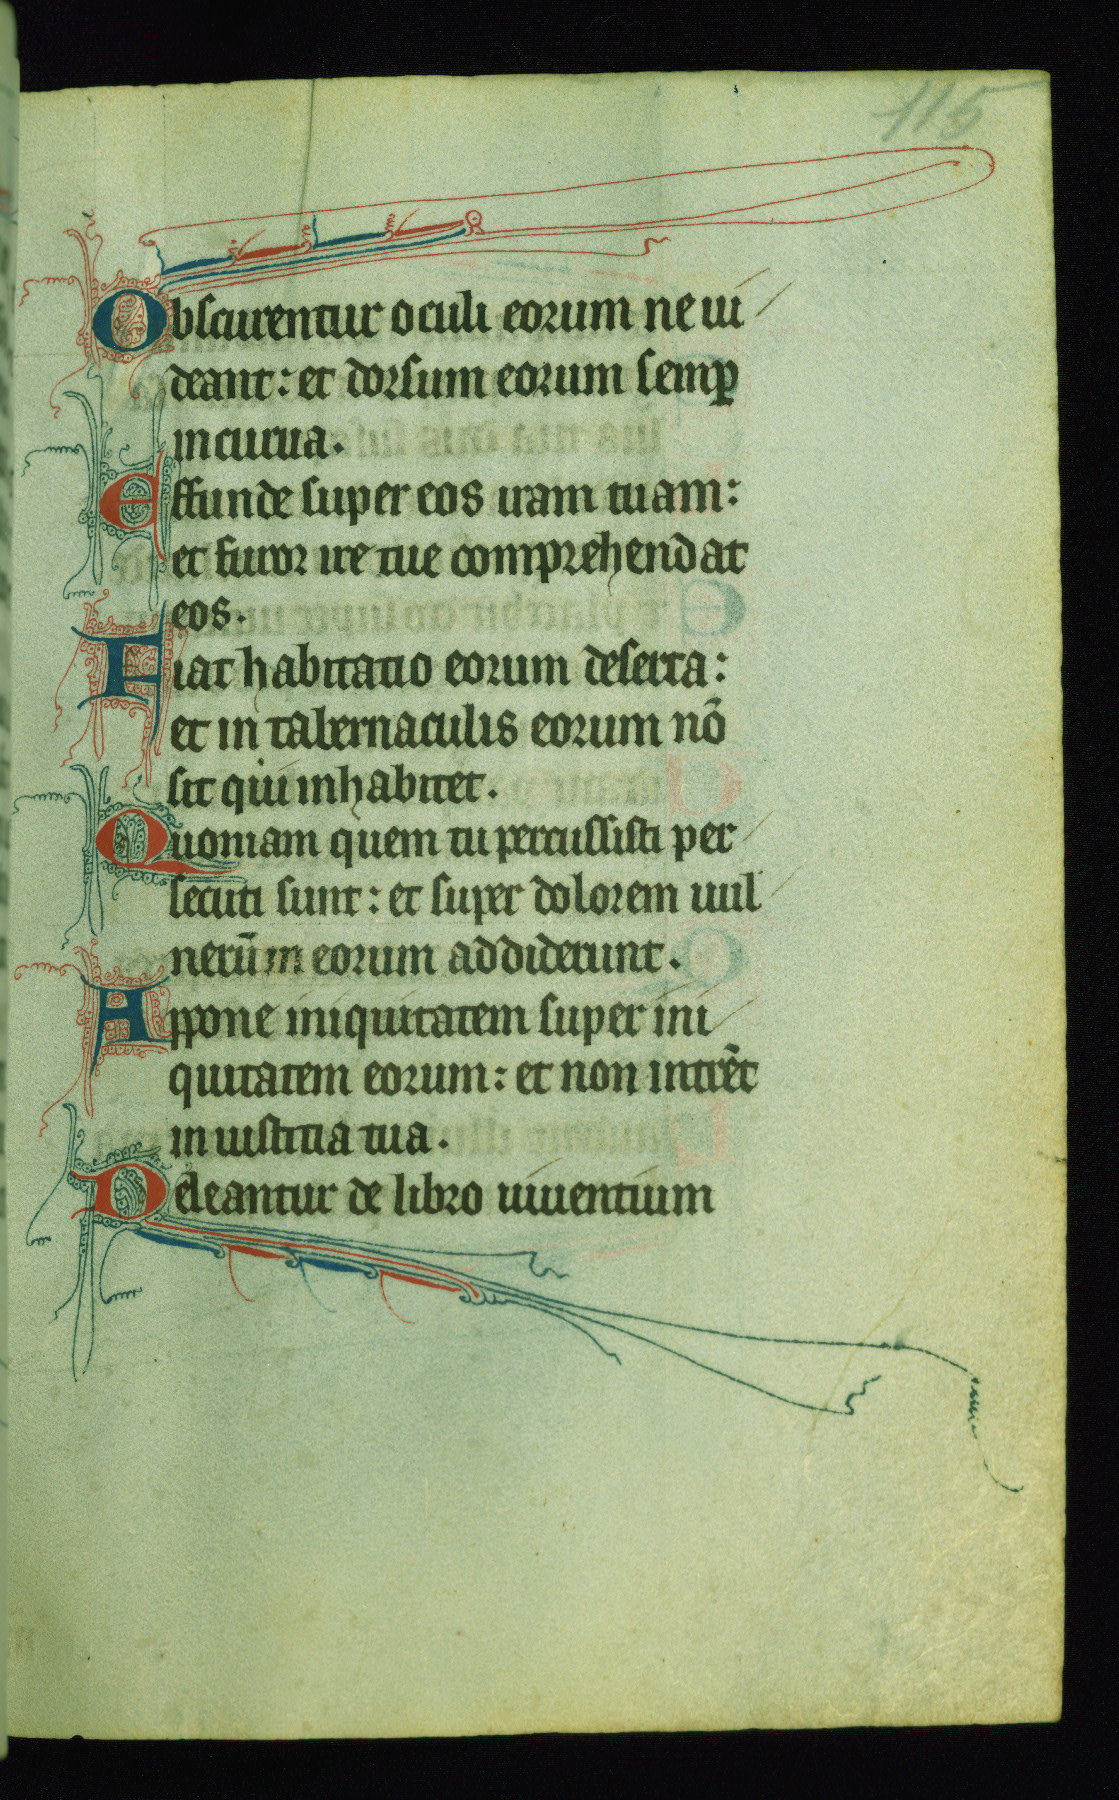 115
Obscurentur oculi eorum ne ui
deant: et dorsum eorum semp̲
incurua.
Effunde super eos iram tuam:
et furor ire tue comprehendat
eos.
Fiat habitatio eorum deserta:
et in tabernaculis eorum nō
sit qui inhabitet.
Quoniam quem tu percussisti per
secuti sunt: et super dolorem uul
nerūm eorum addiderunt.
Appone iniquitatem super ini
quitatem eorum: et non intrēt
in iustitia tua.
Deleantur de libro uiuentium